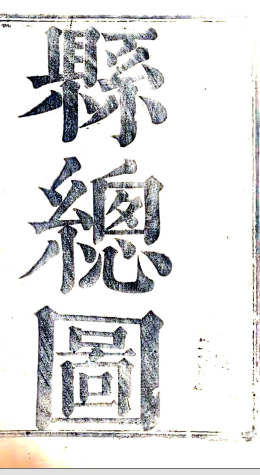 縣總圖